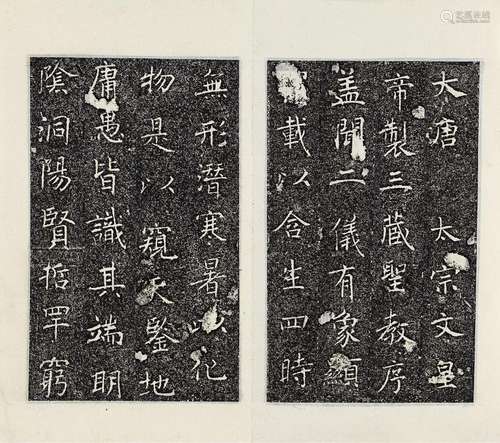 大唐 太宗文皇
帝製三藏聖教序
盖聞二儀有象顯
載以含生四時
無形潛寒暑以化
物是以窺天鑒地
庸愚皆識其端明
陰洞陽賢哲罕窮